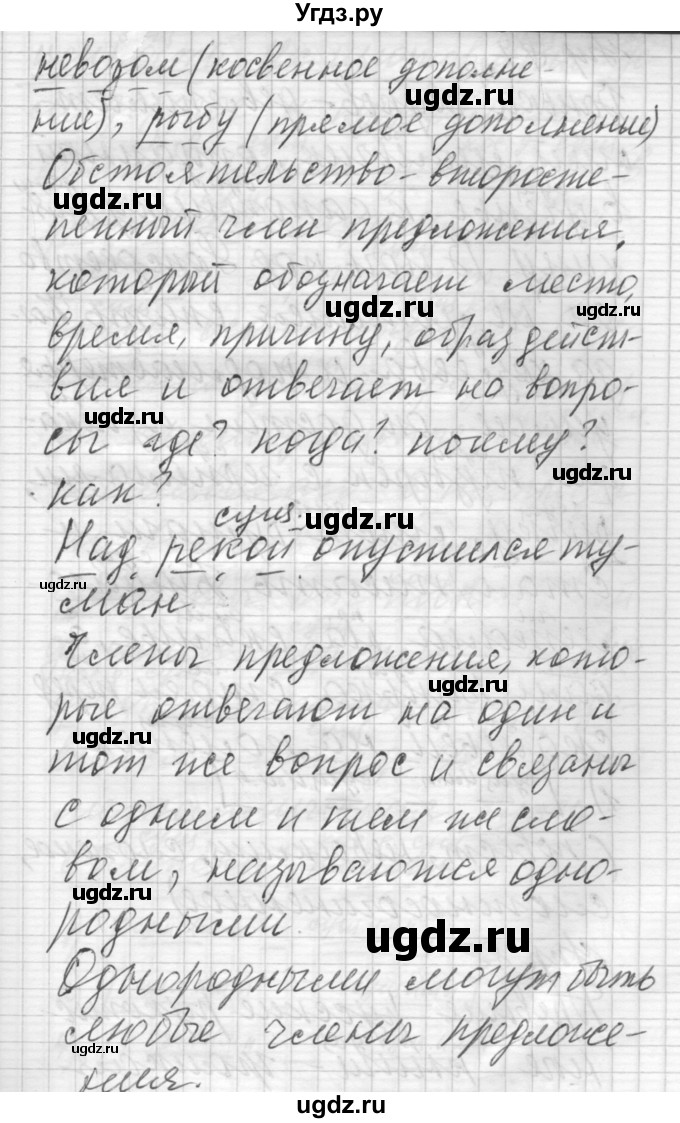 Угдз.ру
неводом (косвенное дополне-
ugdz.ru
ние), рыбу (прямое дополнение)
ugdz.ru
Обстоятельство - второсте-
ugdz.ru
пенный член предложения,
который обозначает место,
ugdz.ru
время, причину, образ дейст-
вия и отвечает на вопро-
ugdz.ru
сы где? когда? почему?
ugdz.ru
как?
сущ.
ugdz.ru
Над рекой опустился ту-
ugdz.ru
ман
Члены предложения, кото-
ugdz.ru
рые отвечают на один и
ugdz.ru
тот же вопрос и связаны
с одним и тем же сло-
вом, называются одно-
ugdz.ru
родными.
ugdz.ru
Однородными могут быть
любые члены предложе-
ugdz.ru
ния.
ugdz.ru